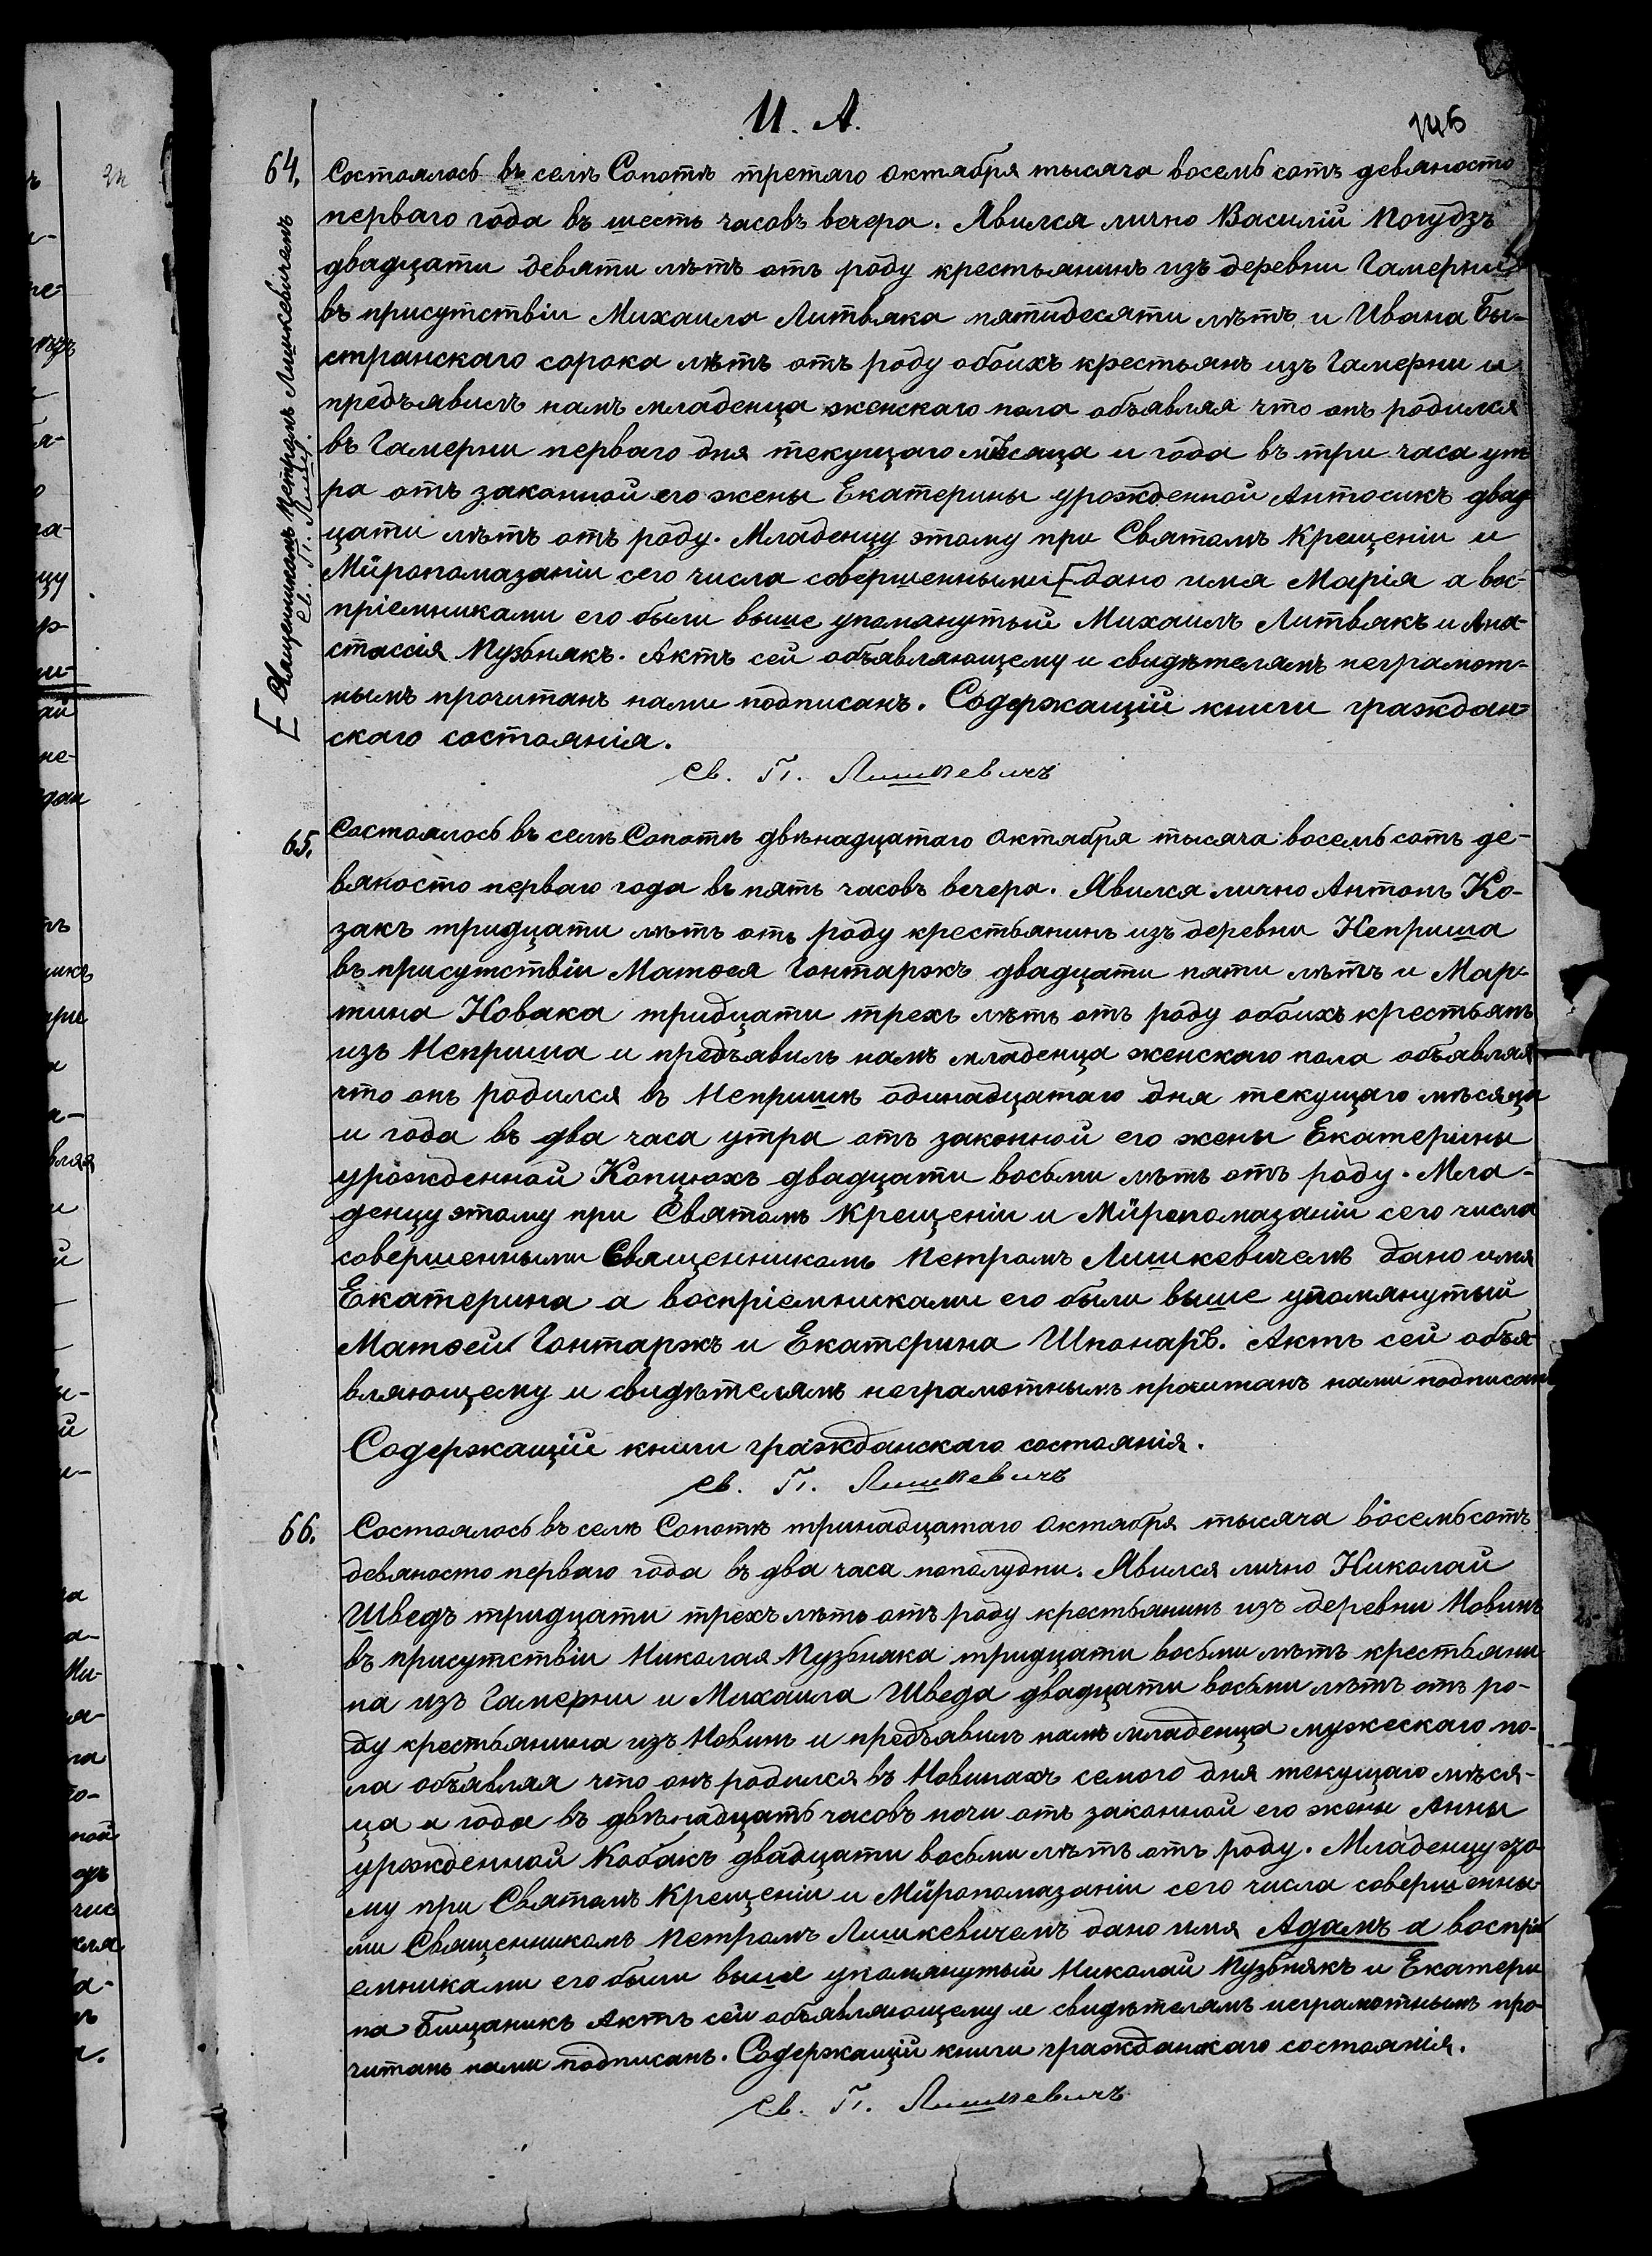 И. А.
64. Состоялось въ селѣ Сопотѣ третяго октября тысяча восемь сотъ девяносто
перваго года въ шесть часовъ вечера. Явился лично Василій Погудзъ
двадцати девяти лѣтъ отъ роду крестьянинъ изъ деревни Гамерни
въ присутствіи Михаила Литвяка пятидесяти лѣтъ и Ивана Бы-
странскаго сорока лѣтъ отъ роду обоихъ крестьянъ изъ Гамерни и
предъявилъ намъ младенца женскаго пола объявляя что онъ родился
въ Гамерни перваго дня текущаго мѣсяца и года въ три часа ут-
ра отъ законной его жены Екатерины урожденной Антосикъ двад-
цати лѣтъ отъ роду. Младенцу этому при Святомъ Крещеніи и
Мѵропомазаніи сего числа совершенными [ дано имя Марія а вос-
пріемниками его были выше упомянутый Михаилъ Литвякъ и Ана-
стасія Пузьнякъ. Актъ сей объявляющему и свидѣтелямъ неграмот-
нымъ прочитанъ нами подписанъ. Содержащій книги граждан-
скаго состоянія.
Св. П. Лишкевичъ
[ Священникомъ Петромъ Лишкевичемъ
Св. П. Лишк.
65. Состоялось въ селѣ Сопотѣ двѣнадцатаго октября тысяча восемь сотъ де-
вяносто перваго года въ пять часовъ вечера. Явился лично Антонъ Ко-
закъ тридцати лѣтъ отъ роду крестьянинъ изъ деревни Неприша
въ присутствіи Матѳея Гонтаржъ двадцати пяти лѣтъ и Мар-
тина Новака тридцати трехъ лѣтъ отъ роду обоихъ крестьянъ
изъ Неприша и предъявилъ намъ младенца женскаго пола объявляя
что онъ родился въ Непришѣ одинадцатаго дня текущаго мѣсяца
и года въ два часа утра отъ законной его жены Екатерины
урожденной Копцюхъ двадцати восьми лѣтъ отъ роду. Мла-
денцу этому при Святомъ Крещеніи и Мѵропомазаніи сего числа
совершенными Священникомъ Петромъ Лишкевичемъ дано имя
Екатерина а воспріемниками его были выше упомянутый
Матѳей Гонтаржъ и Екатерина Шпонаръ. Актъ сей объя-
вляющему и свидѣтелямъ неграмотнымъ прочитанъ нами подписанъ
Содержащій книги гражданскаго состоянія.
Св. П. Лишкевичъ
66. Состоялось въ селѣ Сопотѣ тринадцатаго октября тысяча восемьсотъ
девяносто перваго года въ два часа пополудни. Явился лично Николай
Шведъ тридцати трехъ лѣтъ отъ роду крестьянинъ изъ деревни Новинъ
въ присутствіи Николая Пузьняка тридцати восьми лѣтъ крестьяни-
на изъ Гамерни и Михаила Шведа двадцати восьми лѣтъ отъ ро-
ду крестьянина изъ Новинъ и предъявилъ намъ младенца мужескаго по-
ла объявляя что онъ родился въ Новинахъ семого дня текущаго мѣся-
ца и года въ двѣнадцать часовъ ночи отъ законной его жены Анны
урожденной Кобакъ двадцати восьми лѣтъ отъ роду. Младенцу это-
му при Святомъ Крещеніи и Мѵропомазаніи сего числа совершенны-
ми Священникомъ Петромъ Лишкевичемъ дано имя Адамъ а воспрі-
емниками его были выше упомянутый Николай Пузьнякъ и Екатери-
на Бищаникъ Актъ сей объявляющему и свидѣтелямъ неграмотнымъ про-
читанъ нами подписанъ. Содержащій книги гражданскаго состоянія.
Св. П. Лишкевичъ